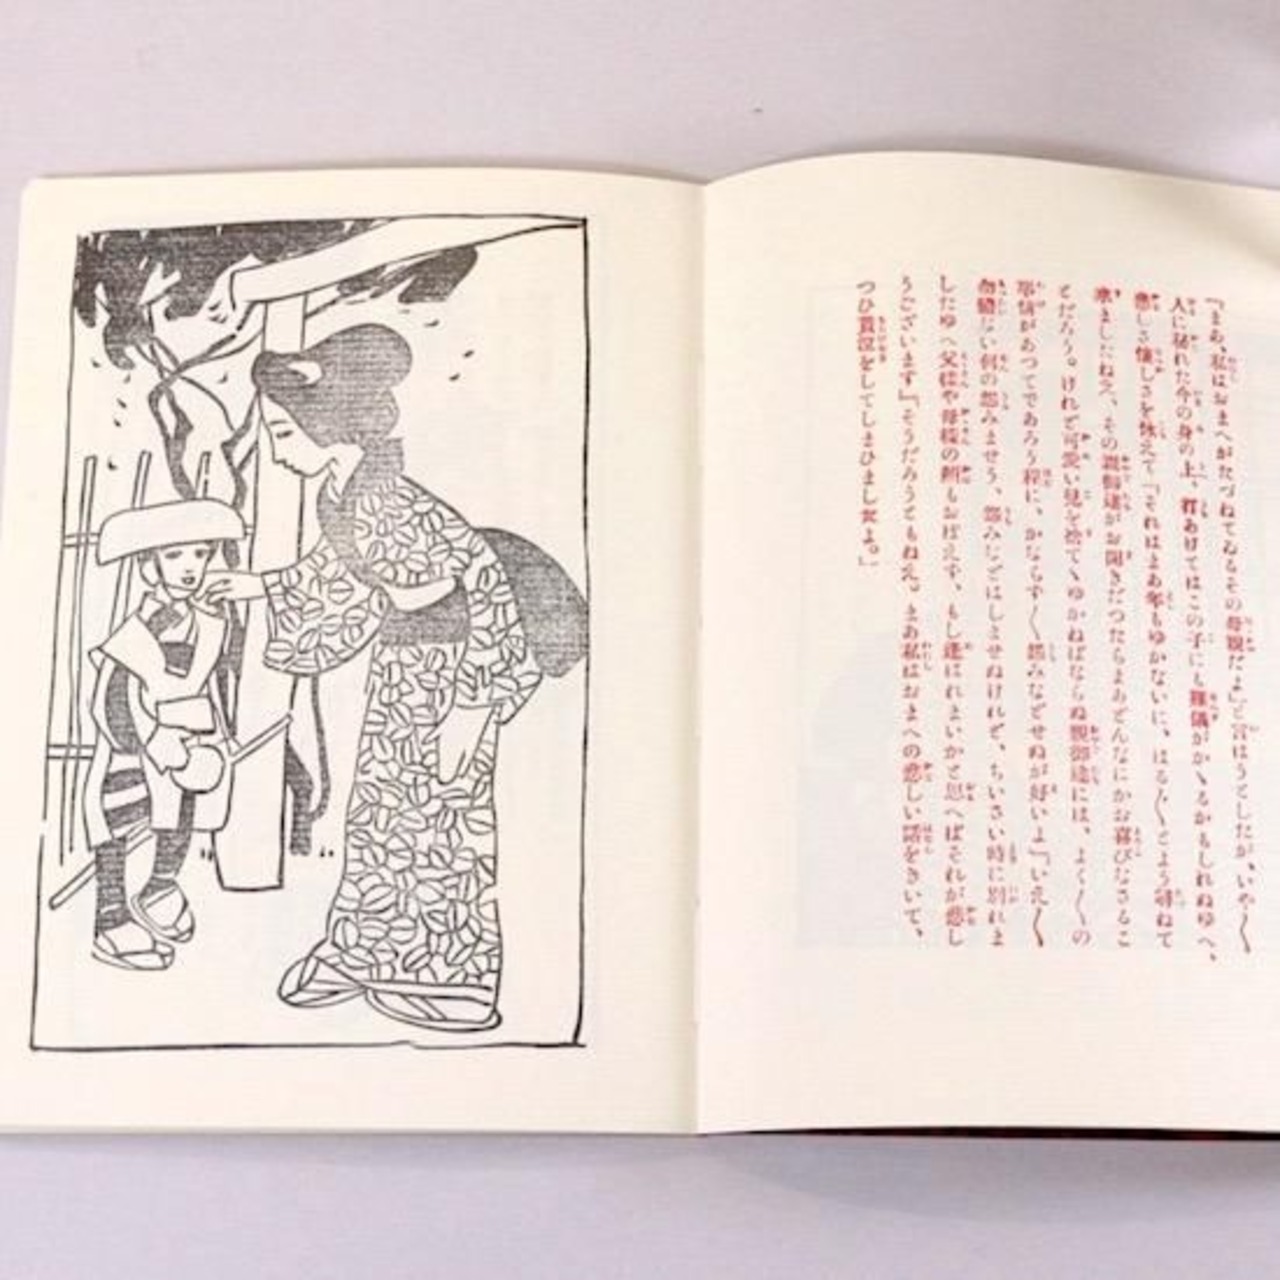 「まあ、私はおまへがたづねてゐるその母親だよ」と言はうとしたが、いや〱
人に秘れた今の身の上、打あけてはこの子にも難儀がかゝるかもしれぬゆへ、
悲しさ懐しさを怺えて「それはまあ年もゆかないに、はる〲とよう尋ねて
來ましたねえ、その親御達がお聞きだつたらまあどんなにかお喜びなさるこ
とだらう。けれど可愛い兒を捨てゝゆかねばならぬ親御達には、よく〱の
事情があつてであろう程に、かならず〱怨みなどせぬが好いよ」「いえ〱
勿體ない何の怨みませう、怨みなどはしませぬけれど、ちいさい時に別れま
したゆへ父樣や母樣の顏もおぼえず、もし逢はれまいかと思へばそれが悲し
うございます」「そうだろうともねえ。まあ私はおまへの悲しい話をきいて、
つひ貰泣をしてしまひましたよ。」